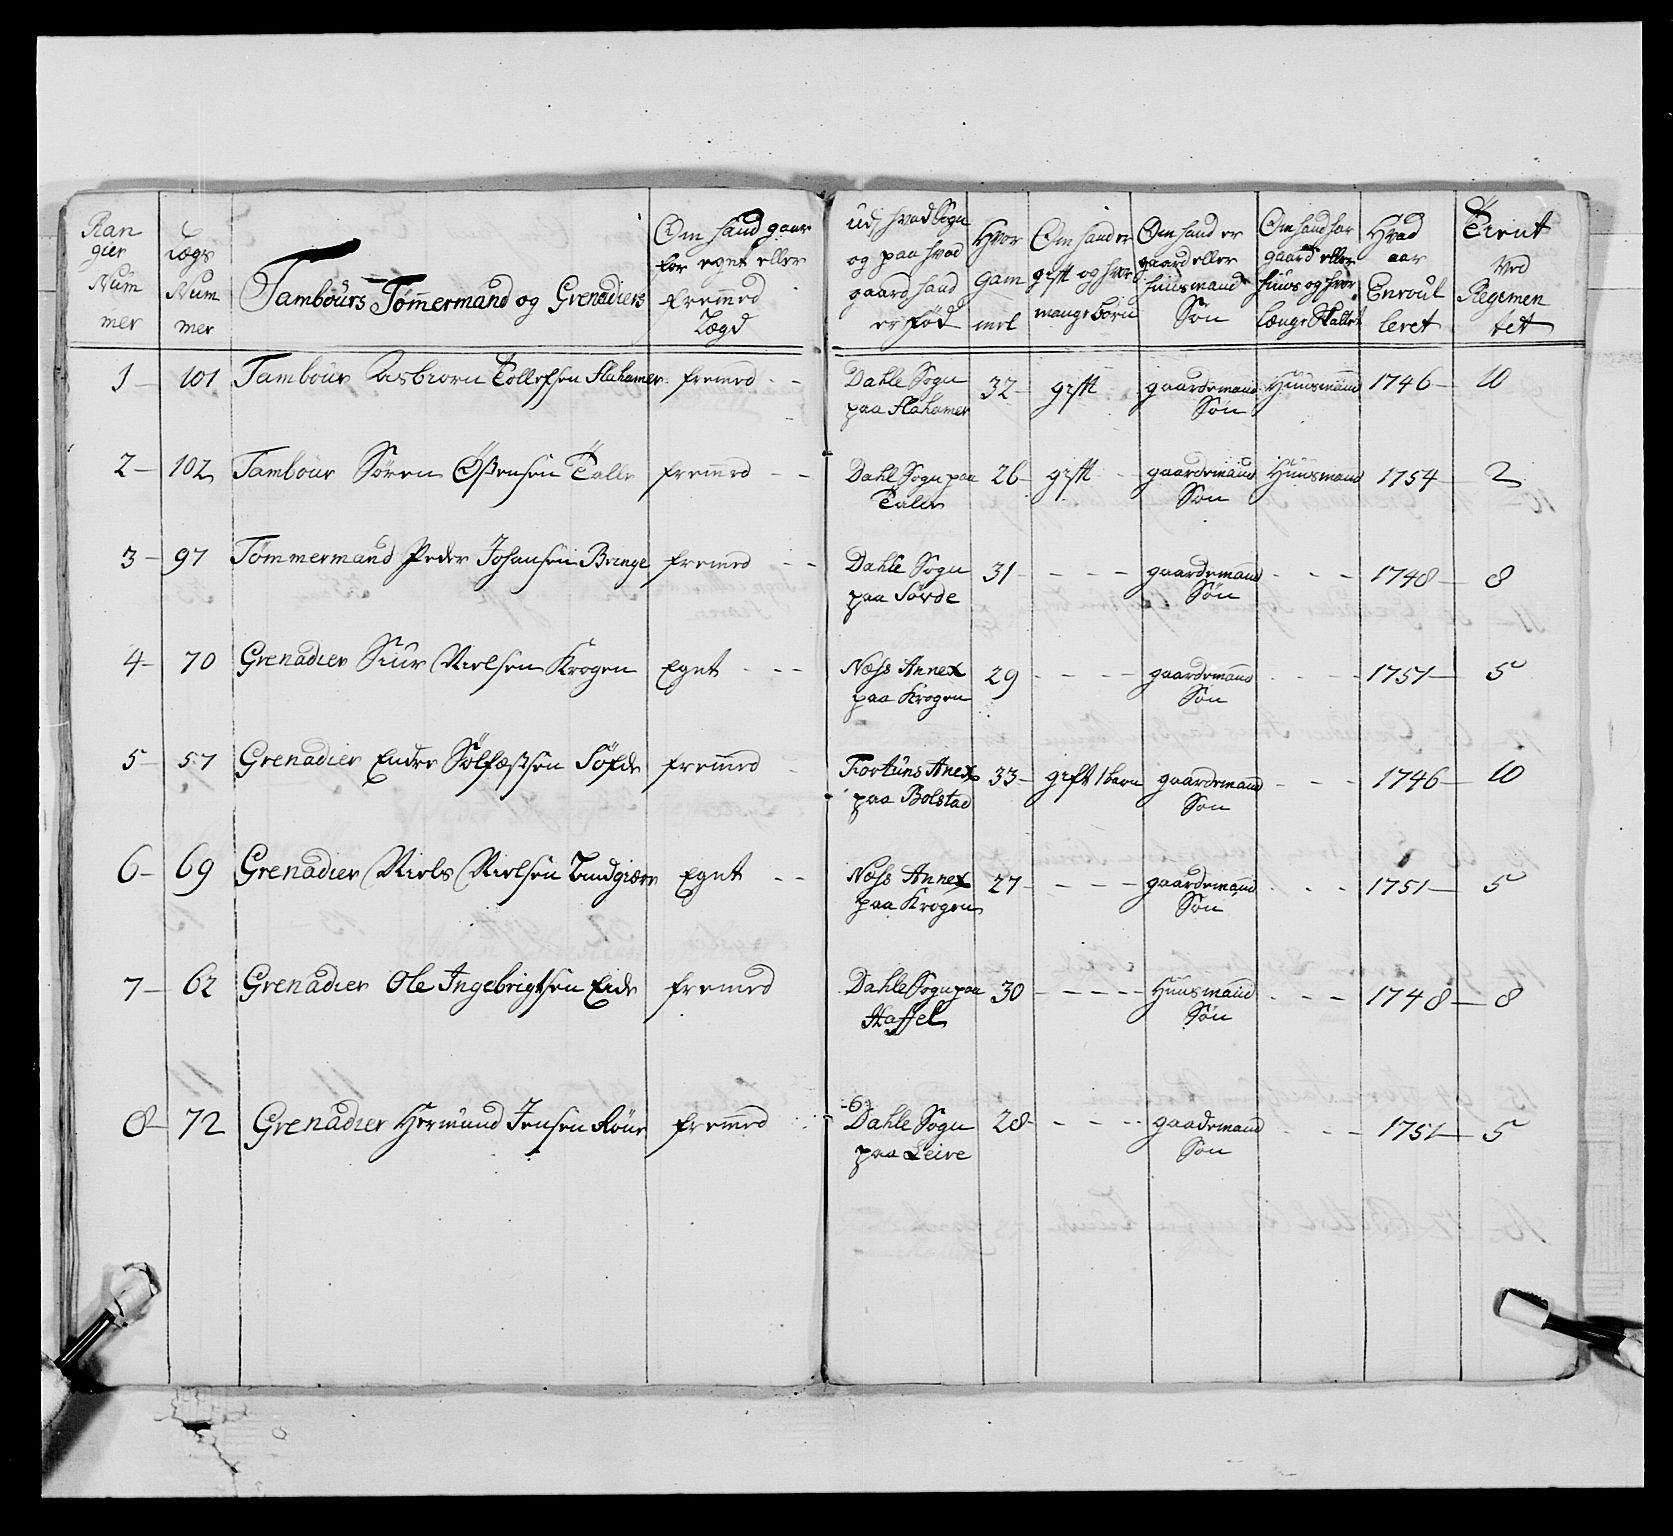 Ran
gier
Num
mer
Lægs
Num
mer
Tambours Tømmermand og Grenadiers
Om hand gaar
for eget eller
Fremmed
Lægd
Ud hvad Sogn
og paa hvad
gaard hand
er fød
Hvor
Gam
mel
Om hand er
gift og hvor
mange børn
Om hand er
gaard eller
huusmands
Søn
Om hand har
gaard eller
huus og hvor
længe Skattet
Hvad
aar
Enroul
leret
Tient
Ved
Regimen
tet
1 101 Tambour Asbiorn Tollefsen Flahamer fremed Dahle Sogn paa Flahamer 32 gift gaardemand Søn Huusmand 1746 10
2 102 Tambour Søren Østensen Talle fremmed Dahle Sogn paa Talle 26 gift gaardemand Søn Huusmand 1754 2
3 97 Tømmermand Peder Johansen Bringe fremed Dahle Sogn paa Sørde 31 gaardemand Søn 1748 8
4 70 Grenadier Siur Nielsen Krogen Eget Næss Annex paa Krogen 29 gaardemand Søn 1751 5
5 57 Grenadier Endre Sølfæstsen fremmed Fiortuns Anex paa Bolstad 33 gift 1 barn gaardemand Søn 1746 10
6 69 Grenadier Niels Nielsen Eget Næss Annex paa Krogen 27 gaardemand Søn 1751 5
7 62 Grenadier Ole Ingebrigtsen Eide fremed Dahle Sogn paa Haffel 30 Huusmand Søn 1748 8
8 72 Grenadier Hermund Jensen fremmed Dahle Sogn paa Leire 28 gaademand Søn 1751 5